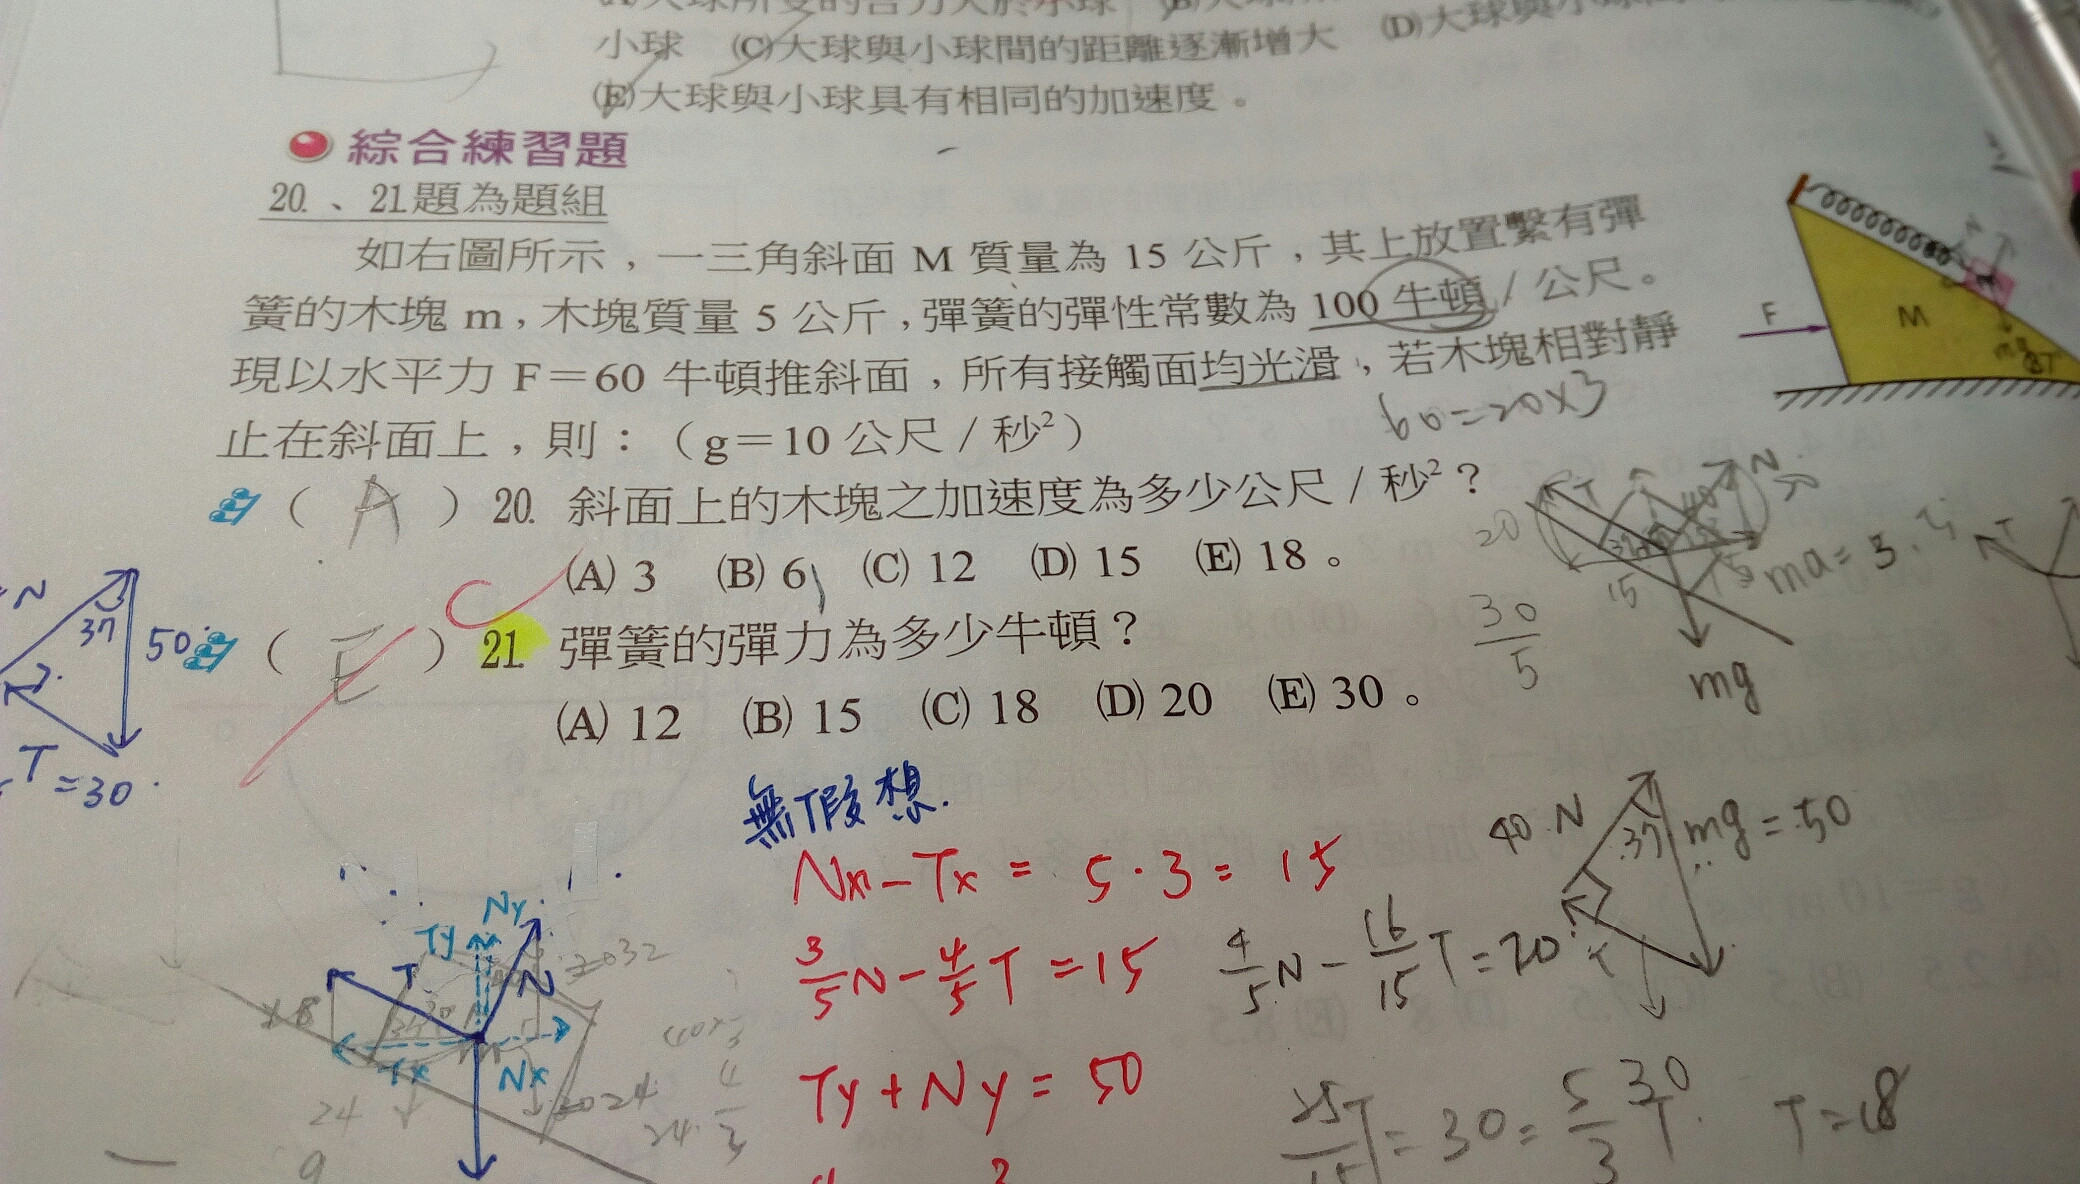 小球 (C)大球與小球間的距離逐漸增大 (D)大球與小
(E)大球與小球具有相同的加速度。
綜合練習題
20.、21.題為題組
如右圖所示，一三角斜面 M 質量為 15 公斤，其上放置繫有彈
簧的木塊 m，木塊質量 5 公斤，彈簧的彈性常數為 100 牛頓/公尺。
現以水平力 F=60 牛頓推斜面，所有接觸面均光滑，若木塊相對靜
止在斜面上，則：（g=10 公尺/秒²）
F
M
60=20×3
( A ) 20. 斜面上的木塊之加速度為多少公尺/秒²？
(A) 3 (B) 6 (C) 12 (D) 15 (E) 18。
C
( E ) 21. 彈簧的彈力為多少牛頓？
(A) 12 (B) 15 (C) 18 (D) 20 (E) 30。
N
37
50
T=30
T
N
20
15
ma=3.5
30
5
mg
無假想.
Nx-Tx=5·3=15
3/5 N - 4/5 T = 15
4/5 N - 16/15 T = 20
Ty+Ny=50
40 N
37
mg=50
Ny
Ty
T
N
Tx
Nx
24
9
25T/15 = 30 = 5/3 T
T=18